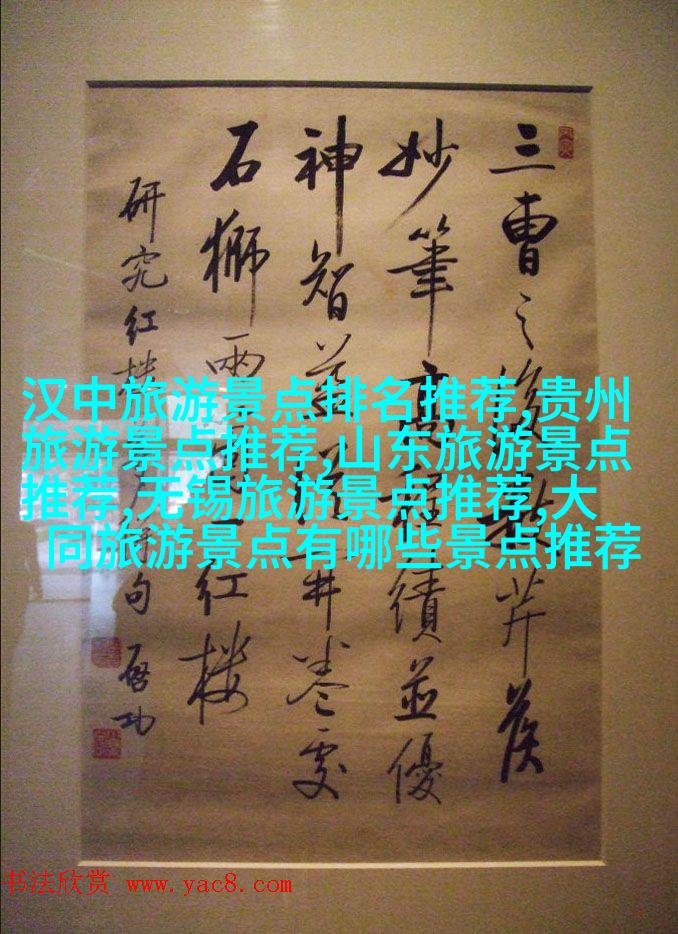 三曹之後數芹侯
妙筆高程績並優
神智益從開卷處
石獅兩個一紅樓
研究紅樓夢詩句
啟功
汉中旅游景点排名推荐,贵州
旅游景点推荐,山东旅游景点
推荐,无锡旅游景点推荐,大
同旅游景点有哪些景点推荐
书法欣赏 www.yac8.com